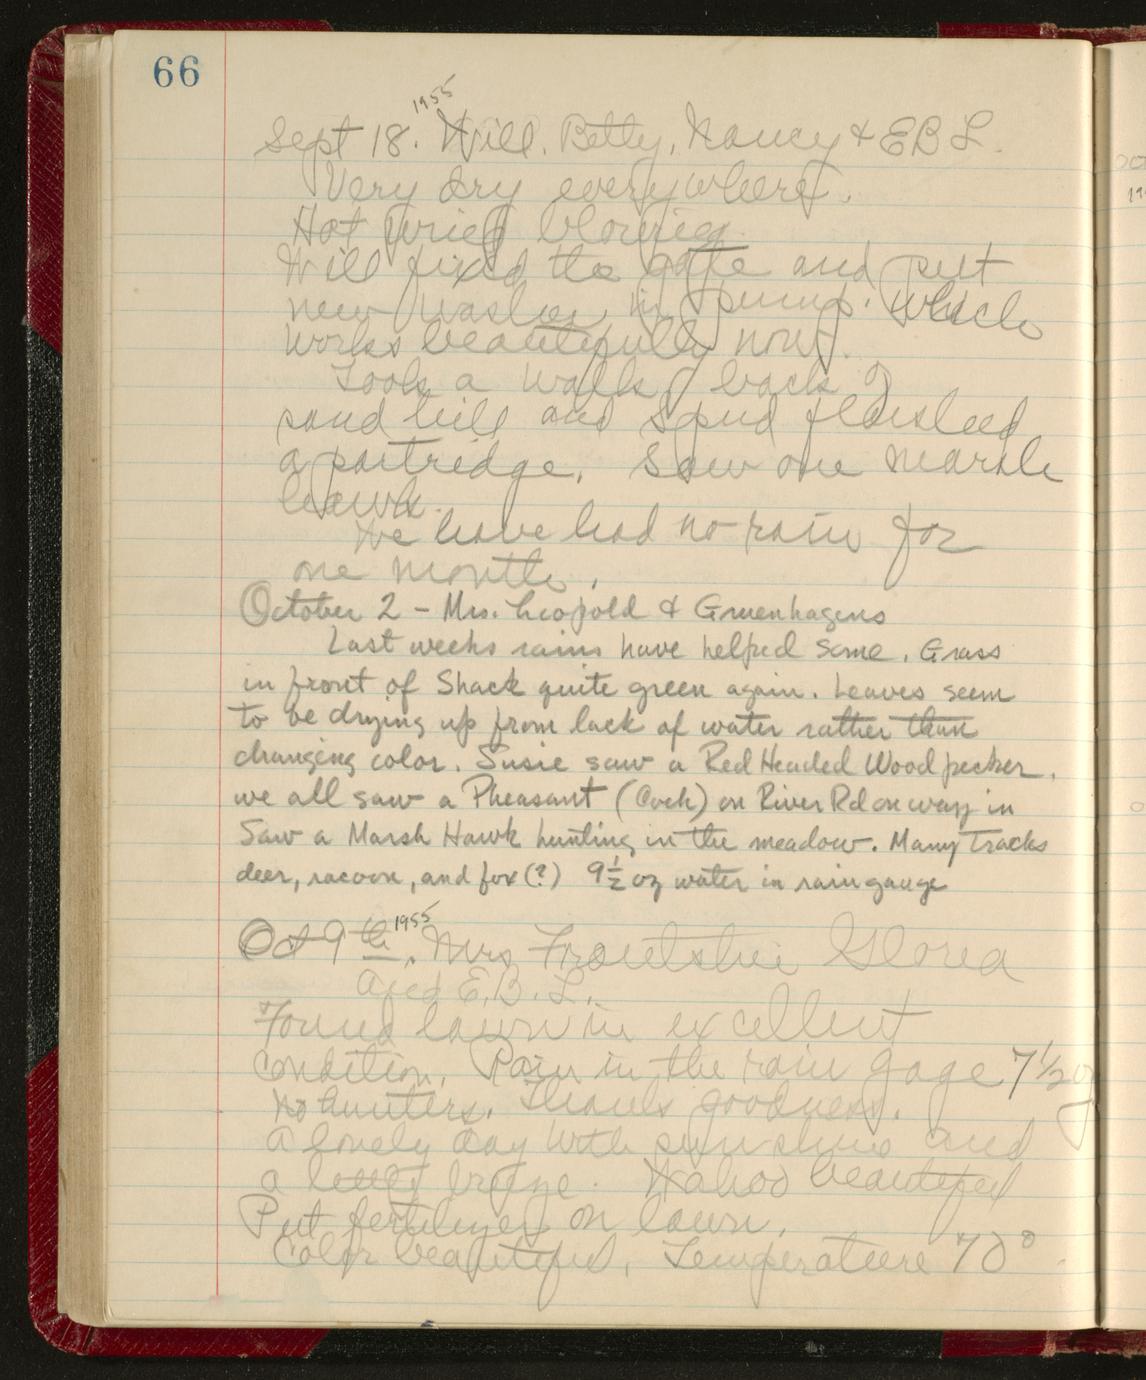 66
1955
Sept 18. Will, Betty, Nancy & EBL.
Very dry everywhere.
Hot wind blowing.
Will fixed the gate and put
new washer in pump. Which
works beautifully now.
Took a walk back of
sand hill and Spud flushed
a partridge. Saw one marsh
hawk.
We have had no rain for
one month.
October 2 - Mrs. Leopold & Gruenhagens
Last weeks rains have helped some. Grass
in front of Shack quite green again. Leaves seem
to be drying up from lack of water rather than
changing color. Susie saw a Red Headed Woodpecker.
we all saw a Pheasant (Cock) on River Rd on way in
Saw a Marsh Hawk hunting in the meadow. Many Tracks
deer, racoon, and fox (?) 9 1/2 oz water in rain gauge
1955
Oct 9th. Mrs Gloria
and E.B.L.
Found lawn in excellent
condition. Rain in the rain gage 7 1/2 oz
No hunters. Thank goodness.
A lovely day with sunshine and
a little breeze. Wahoo beautiful
Put fertilizer on lawn.
Color beautiful. Temperature 70°